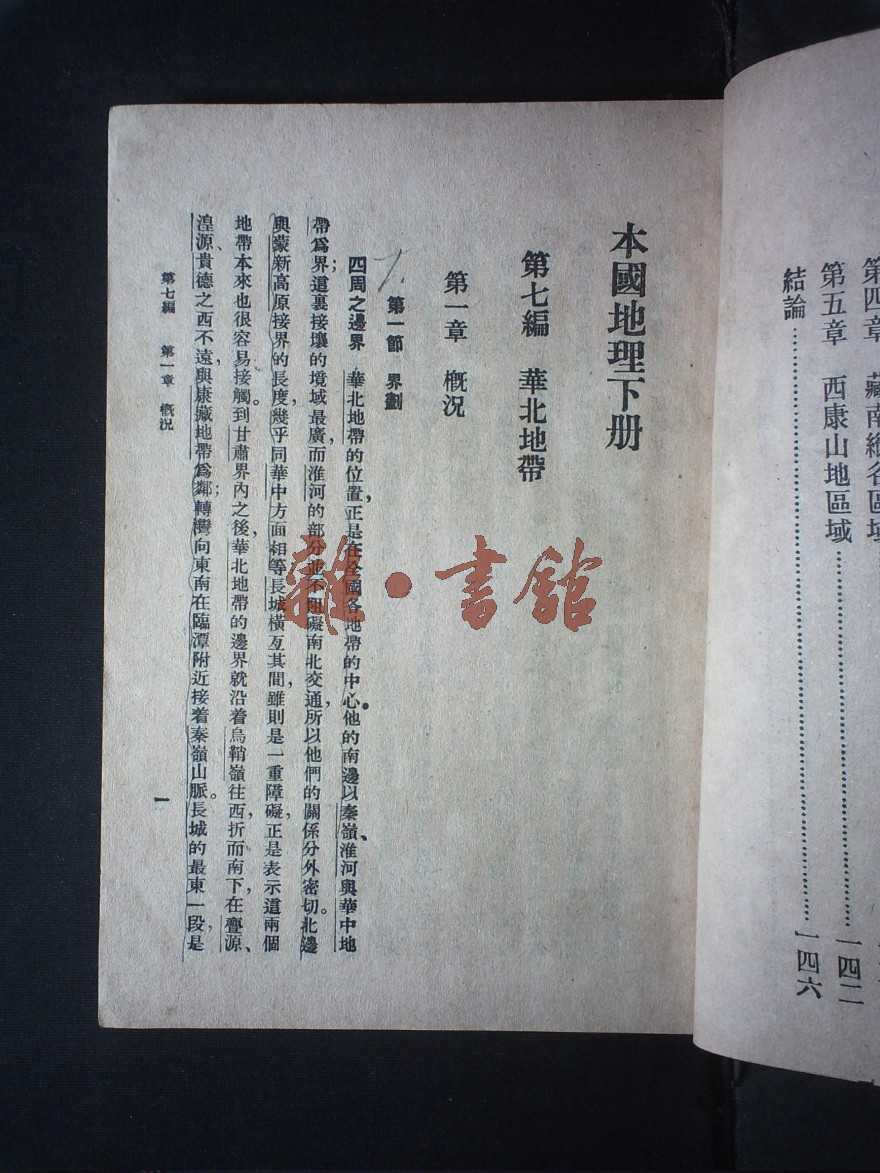 第四章　藏南縱谷區域
第五章　西康山地區域……一四二
結論……一四六
本國地理下册
第七編　華北地帶
第一章　概況
第一節　界劃
四周之邊界　華北地帶的位置，正是在全國各地帶的中心。他的南邊以秦嶺、淮河與華中地
帶爲界；這裏接壤的境域最廣，而淮河的部分並不阻礙南北交通，所以他們的關係分外密切。北邊
與蒙新高原接界的長度，幾乎同華中方面相等，長城橫亙其間，雖則是一重障礙，正是表示這兩個
地帶本來也很容易接觸。到甘肅界內之後，華北地帶的邊界就沿着烏鞘嶺往西，折而南下，在亹源、
湟源、貴德之西不遠，與康藏地帶爲鄰；轉灣向東南在臨潭附近接着秦嶺山脈。長城的最東一段，是
第七編　第一章　概況
一
雜·書館